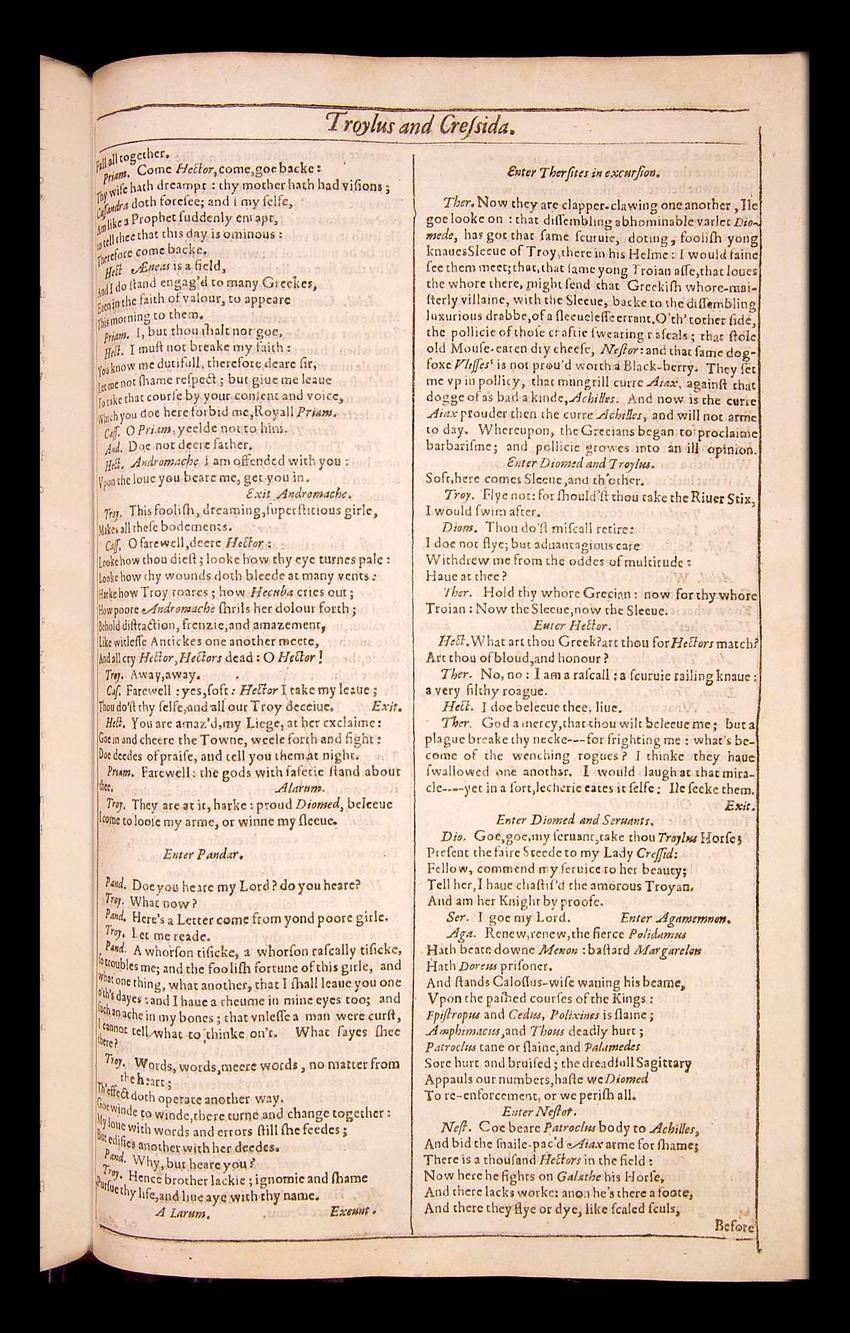 Troylus and Creſsida.
Fall all together.
Priam. Come Hector, come, goe backe:
Thy wife hath dreampt: thy mother hath had viſions;
Caſſandra doth foreſee; and I my ſelfe,
Am like a Prophet ſuddenly enrapt,
to tell thee that this day is ominous:
Therefore come backe.
Hect. Æneas is a field,
And I do ſtand engag'd to many Greekes,
Euen in the faith of valour, to appeare
This morning to them.
Priam. I, but thou ſhalt not goe,
Hect. I muſt not breake my faith:
You know me dutifull, therefore deare ſir,
Let me not ſhame reſpect; but giue me leaue
To take that courſe by your conſent and voice,
Which you doe here forbid me, Royall Priam.
Caſſ. O Priam, yeelde not to him.
And. Doe not deere father.
Hect. Andromache I am offended with you:
Vpon the loue you beare me, get you in.
Exit Andromache.
Troy. This fooliſh, dreaming, ſuperſtitious girle,
Makes all theſe bodements.
Caſſ. O farewell, deere Hector:
Looke how thou dieſt; looke how thy eye turnes pale:
Looke how thy wounds doth bleede at many vents:
Harke how Troy roares; how Hecuba cries out;
How poore Andromache ſhrils her dolour forth;
Behold diſtraction, frenzie, and amazement,
Like witleſſe Antickes one another meete,
And all cry Hector, Hectors dead: O Hector!
Troy. Away, away.
Caſ. Farewell: yes, ſoft: Hector I take my leaue;
Thou do'ſt thy ſelfe, and all our Troy deceiue. Exit.
Hect. You are amaz'd, my Liege, at her exclaime:
Goe in and cheere the Towne, weele forth and fight:
Doe deedes of praiſe, and tell you them at night.
Priam. Farewell: the gods with ſafetie ſtand about
thee. Alarum.
Troy. They are at it, harke: proud Diomed, beleeue
I come to looſe my arme, or winne my ſleeue.
Enter Pandar.
Pand. Doe you heare my Lord? do you heare?
Troy. What now?
Pand. Here's a Letter come from yond poore girle.
Troy. Let me reade.
Pand. A whorſon tiſicke, a whorſon raſcally tiſicke,
ſo troubles me; and the fooliſh fortune of this girle, and
what one thing, what another, that I ſhall leaue you one
o'th's dayes: and I haue a rheume in mine eyes too; and
ſuch an ache in my bones; that vnleſſe a man were curſt,
I cannot tell what to thinke on't. What ſayes ſhee
there?
Troy. Words, words, meere words, no matter from
the heart;
Th'effect doth operate another way.
Goe winde to winde, there turne and change together:
My loue with words and errors ſtill ſhe feedes;
But edifies another with her deedes.
Pand. Why, but heare you?
Troy. Hence brother lackie; ignomie and ſhame
Purſue thy life, and liue aye with thy name.
A Larum. Exeunt.
Enter Therſites in excurſion.
Ther. Now they are clapper-clawing one another, Ile
goe looke on: that diſſembling abhominable varlet Dio-
mede, has got that ſame ſcuruie, doting, fooliſh yong
knaues Sleeue of Troy, there in his Helme: I would faine
ſee them meet; that, that ſame yong Troian aſſe, that loues
the whore there, might ſend that Greekiſh whore-mai-
ſterly villaine, with the Sleeue, backe to the diſſembling
luxurious drabbe, of a ſleeueleſſe errant. O'th'tother ſide,
the pollicie of thoſe craftie ſwearing raſcals; that ſtole
old Mouſe-eaten dry cheeſe, Neſtor: and that ſame dog-
foxe Vliſſes is not prou'd worth a Black-berry. They ſet
me vp in pollicy, that mungrill curre Aiax, againſt that
dogge of as bad a kinde, Achilles. And now is the curre
Aiax prouder then the curre Achilles, and will not arme
to day. Whereupon, the Grecians began to proclaime
barbariſme; and pollicie growes into an ill opinion.
Enter Diomed and Troylus.
Soft, here comes Sleeue, and th'other.
Troy. Flye not: for ſhould'ſt thou take the Riuer Stix,
I would ſwim after.
Diom. Thou do'ſt miſcall retire:
I doe not flye; but aduantagious care
Withdrew me from the oddes of multitude:
Haue at thee?
Ther. Hold thy whore Grecian: now for thy whore
Troian: Now the Sleeue, now the Sleeue.
Enter Hector.
Hect. What art thou Greek? art thou for Hectors match?
Art thou of bloud, and honour?
Ther. No, no: I am a raſcall: a ſcuruie railing knaue:
a very filthy roague.
Hect. I doe beleeue thee, liue.
Ther. God a mercy, that thou wilt beleeue me; but a
plague breake thy necke---for frighting me: what's be-
come of the wenching rogues? I thinke they haue
ſwallowed one another. I would laugh at that mira-
cle----yet in a ſort, lecherie eates it ſelfe: Ile ſeeke them.
Exit.
Enter Diomed and Seruants.
Dio. Goe, goe, my ſeruant, take thou Troylus Horſe;
Preſent the faire Steede to my Lady Creſſid:
Fellow, commend my ſeruice to her beauty;
Tell her, I haue chaſtiſ'd the amorous Troyan.
And am her Knight by proofe.
Ser. I goe my Lord. Enter Agamemnon.
Aga. Renew, renew, the fierce Polidamus
Hath beate downe Menon: baſtard Margarelon
Hath Doreus priſoner.
And ſtands Caloſſus-wiſe wauing his beame,
Vpon the paſhed courſes of the Kings:
Epiſtropus and Cedus, Polixines is ſlaine;
Amphimacus, and Thous deadly hurt;
Patroclus tane or ſlaine, and Palamedes
Sore hurt and bruiſed; the dreadfull Sagittary
Appauls our numbers, haſte we Diomed
To re-enforcement, or we periſh all.
Enter Neſtor.
Neſt. Coe beare Patroclus body to Achilles,
And bid the ſnaile-pac'd Aiax arme for ſhame;
There is a thouſand Hectors in the field:
Now here he fights on Galathe his Horſe,
And there lacks worke: anon he's there a foote,
And there they flye or dye, like ſcaled ſculs,
Before